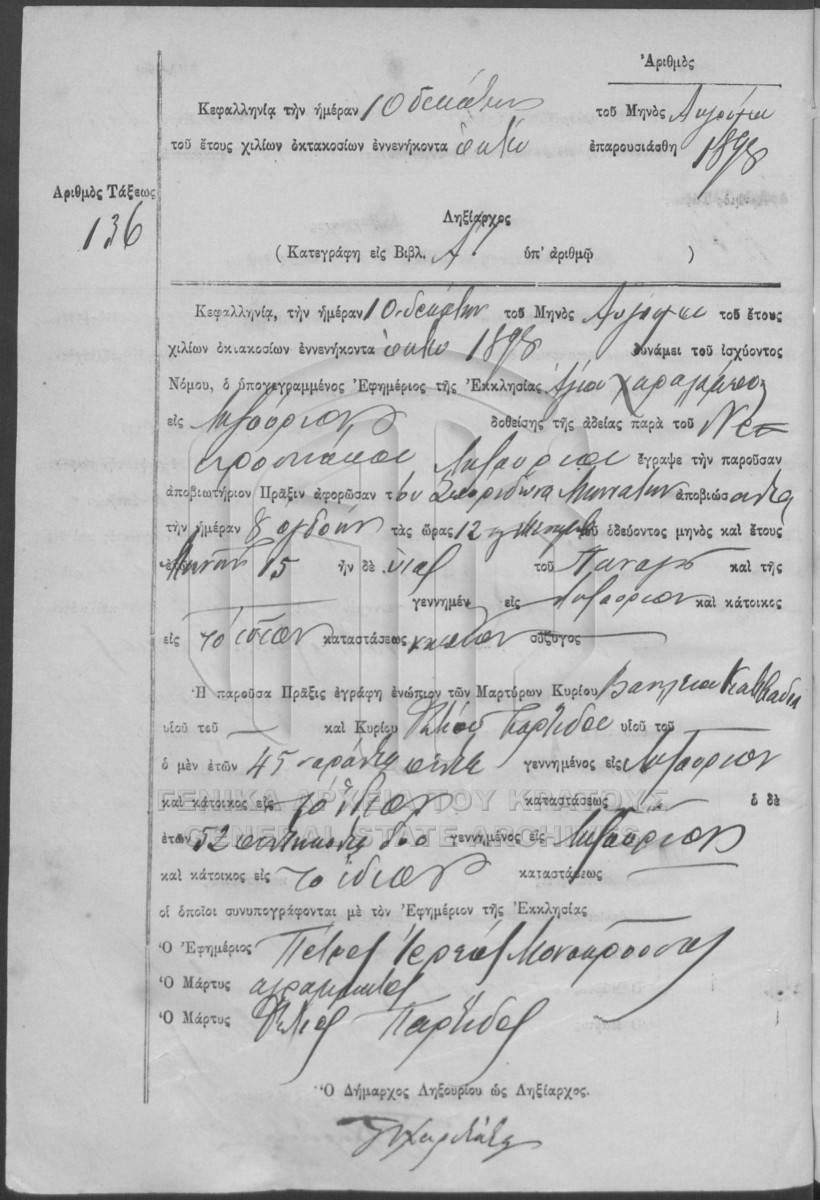 Ἀριθμὸς
Κεφαλληνίᾳ τὴν ἡμέραν 10 δεκάτην τοῦ Μηνὸς Αὐγούστου
τοῦ ἔτους χιλίων ὀκτακοσίων ἐννενήκοντα ὀκτὼ ἐπαρουσιάσθη
1898
Ἀριθμὸς Τάξεως
136
Ληξίαρχος
( Κατεγράφη εἰς Βιβλ. Α! ὑπ' ἀριθμῷ )
Κεφαλληνίᾳ, τὴν ἡμέραν 10 δεκάτην τοῦ Μηνὸς Αὐγούστου τοῦ ἔτους
χιλίων ὀκτακοσίων ἐννενήκοντα ὀκτὼ 1898 δυνάμει τοῦ ἰσχύοντος
Νόμου, ὁ ὑπογεγραμμένος Ἐφημέριος τῆς Ἐκκλησίας Ἁγίου Χαραλάμπους
εἰς Ληξούριον δοθείσης τῆς ἀδείας παρὰ τοῦ
Ληξουρίου ἔγραψε τὴν παροῦσαν
ἀποβιωτήριον Πρᾶξιν ἀφορῶσαν τὸν Σπυρίδωνα ἀποβιώσαντα
τὴν ἡμέραν 8 ὀγδόην τὰς ὥρας 12 τοῦ ὁδεύοντος μηνὸς καὶ ἔτους
15 ἦν δὲ υἱὸς τοῦ Παναγῆ καὶ τῆς
γεννημέν εἰς Ληξούριον καὶ κάτοικος
εἰς τὸ ἴδιον καταστάσεως σύζυγος
Ἡ παροῦσα Πρᾶξις ἐγράφη ἐνώπιον τῶν Μαρτύρων Κυρίου
υἱοῦ τοῦ — καὶ Κυρίου υἱοῦ τοῦ
ὁ μὲν ἐτῶν 45 σαράντα πέντε γεννημένος εἰς Ληξούριον
καὶ κάτοικος εἰς τὸ ἴδιον καταστάσεως ὁ δὲ
ΓΕΝΙΚΑ ΑΡΧΕΙΑ ΤΟΥ ΚΡΑΤΟΥΣ
GENERAL STATE ARCHIVES
ἐτῶν 52 πεντήκοντα δύο γεννημένος εἰς Ληξούριον
καὶ κάτοικος εἰς τὸ ἴδιον καταστάσεως
οἱ ὁποῖοι συνυπογράφονται μὲ τὸν Ἐφημέριον τῆς Ἐκκλησίας
Ὁ Ἐφημέριος Πέτρος Ἱερεὺς
Ὁ Μάρτυς ἀγράμματος
Ὁ Μάρτυς
Ὁ Δήμαρχος Ληξουρίου ὡς Ληξίαρχος.